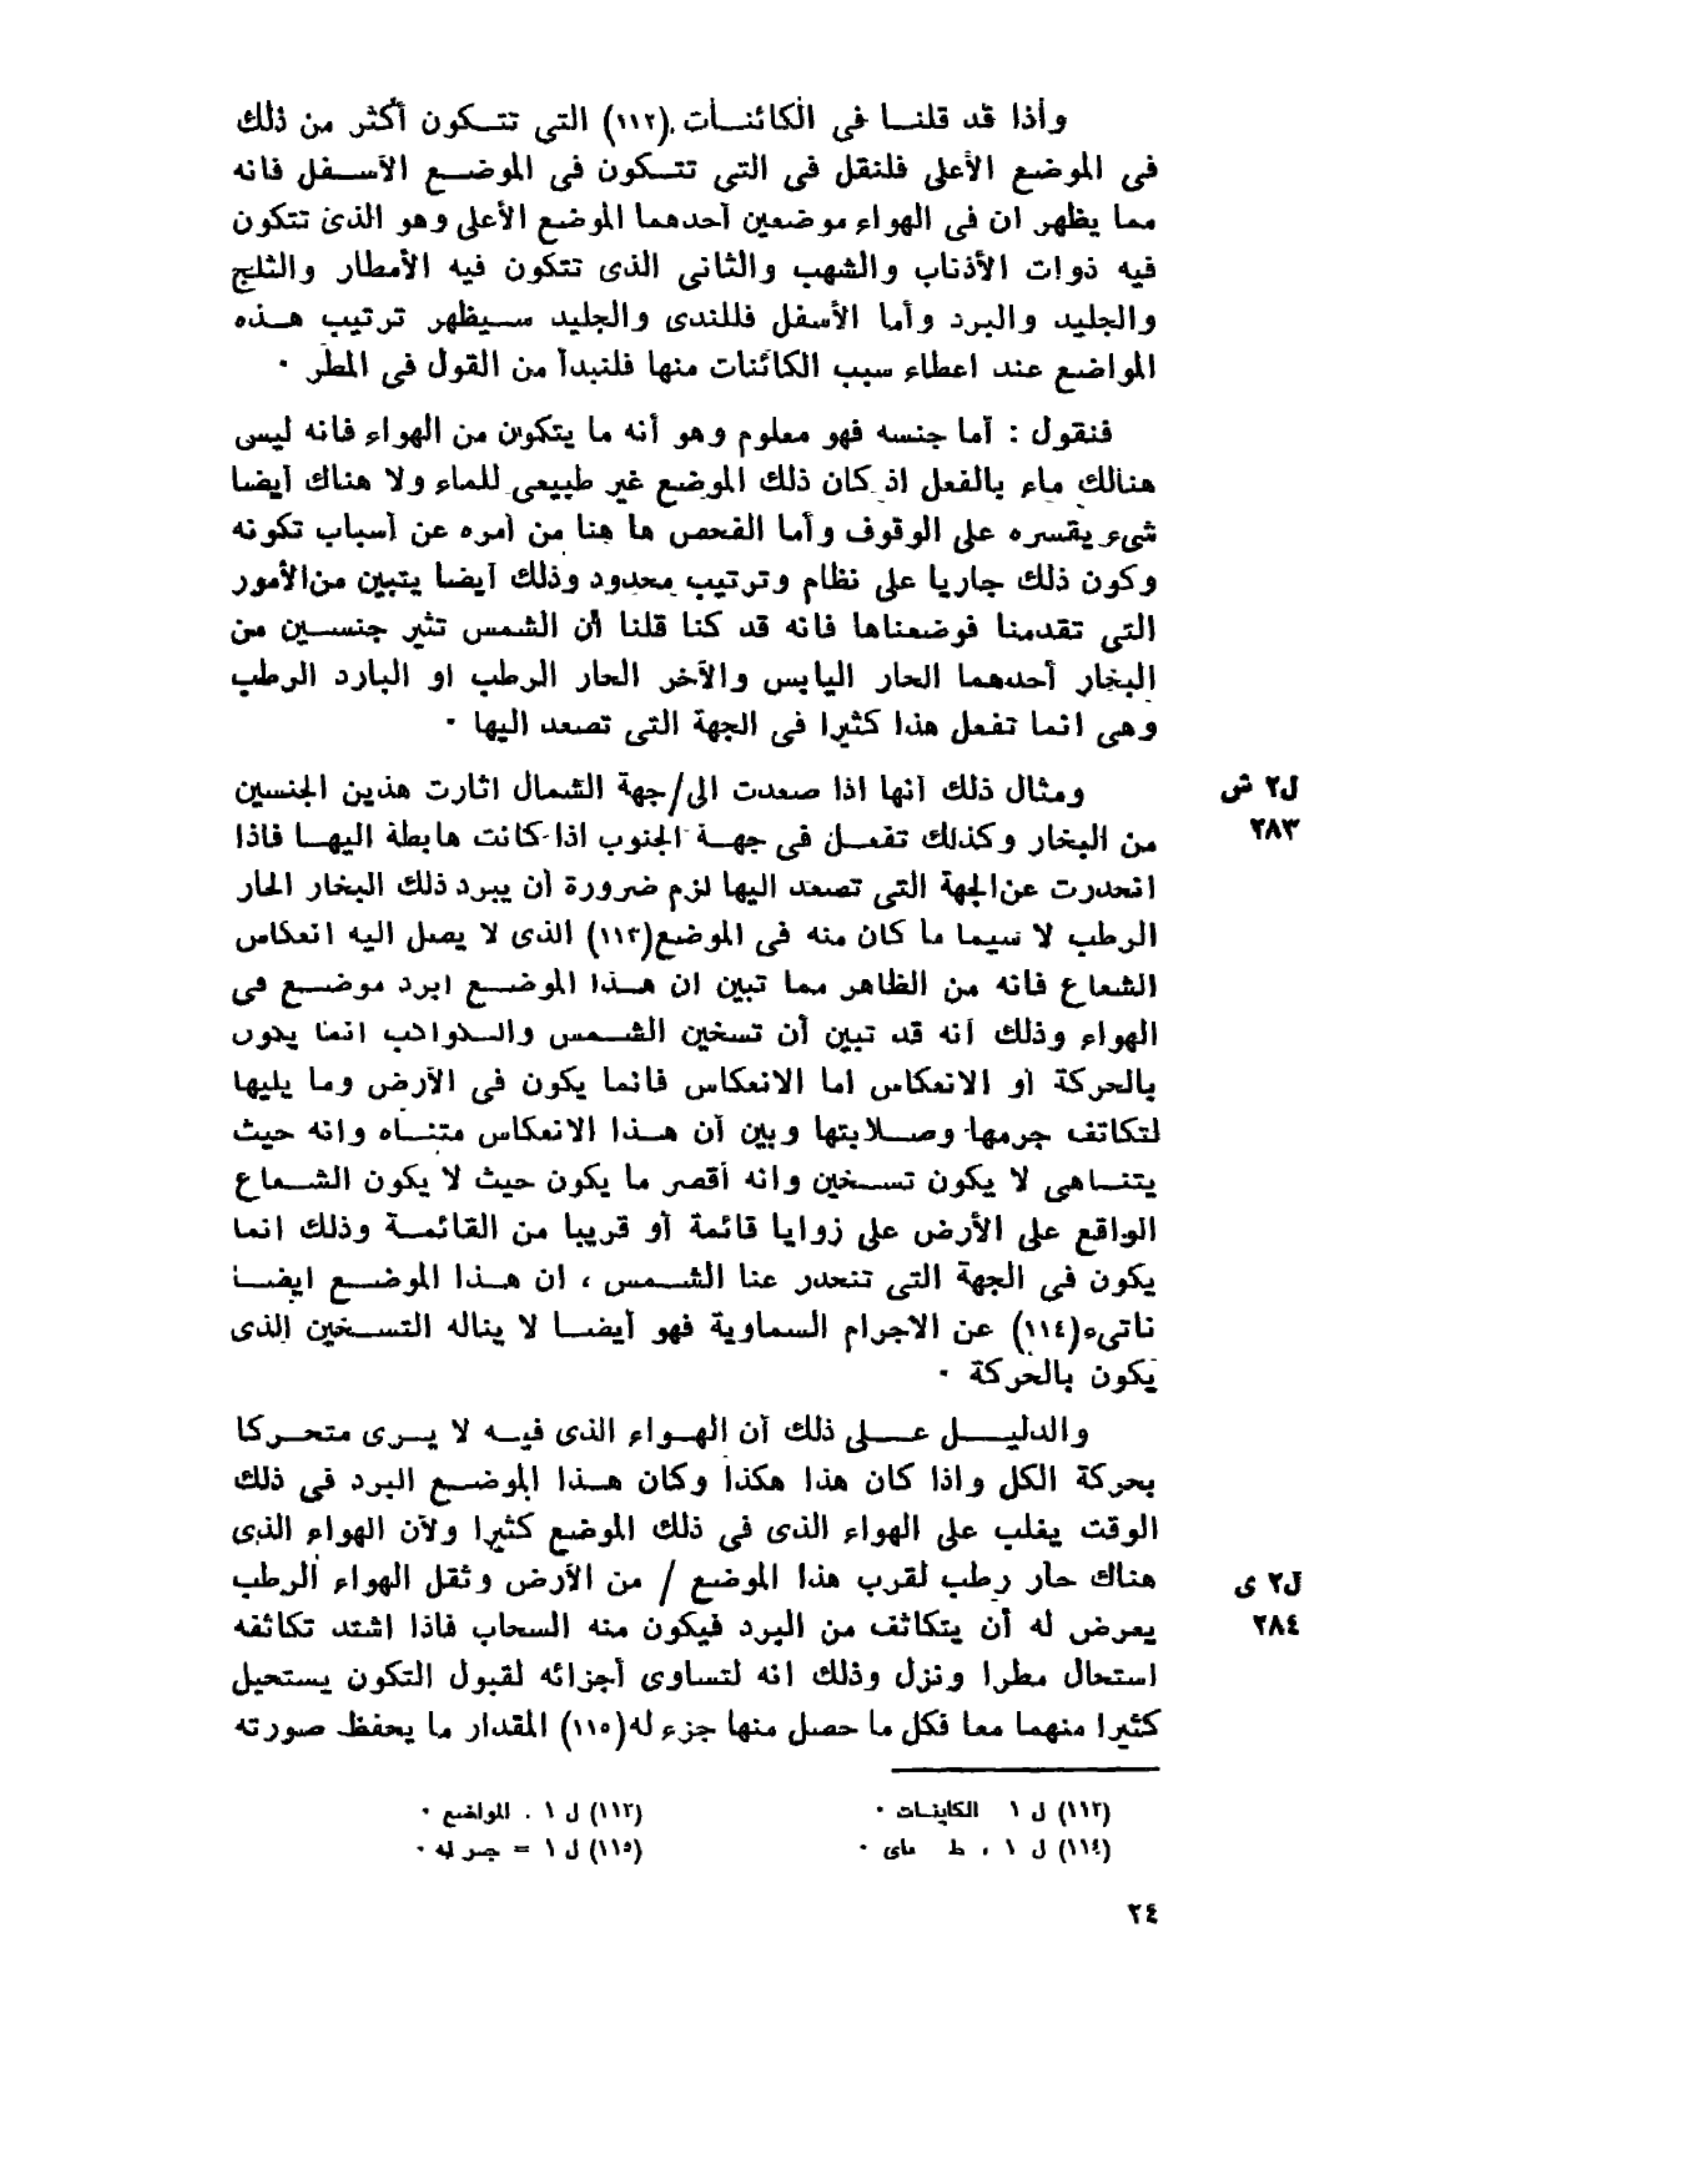 وأذا قد قلنا فى الكائنات (١١٢) التى تتكون أكثر من ذلك
فى الموضع الأعلى فلنقل فى التى تتكون فى الموضع الأسفل فانه
مما يظهر ان فى الهواء موضعين أحدهما الموضع الأعلى وهو الذى تتكون
فيه ذوات الأذناب والشهب والثانى الذى تتكون فيه الأمطار والثلج
والجليد والبرد وأما الأسفل فللندى والجليد سيظهر ترتيب هذه
المواضع عند اعطاء سبب الكائنات منها فلنبدأ من القول فى المطر ٠
فنقول : أما جنسه فهو معلوم وهو أنه ما يتكون من الهواء فانه ليس
هنالك ماء بالفعل اذ كان ذلك الموضع غير طبيعى للماء ولا هناك أيضا
شىء يقسره على الوقوف وأما الفحص ها هنا من أمره عن أسباب تكونه
وكون ذلك جاريا على نظام وترتيب محدود وذلك أيضا يتبين من الأمور
التى تقدمنا فوضعناها فانه قد كنا قلنا أن الشمس تثير جنسين من
البخار أحدهما الحار اليابس والآخر الحار الرطب او البارد الرطب
وهى انما تفعل هذا كثيرا فى الجهة التى تصعد اليها ٠
ومثال ذلك أنها اذا صعدت الى/جهة الشمال اثارت هذين الجنسين
ل٢ ش
من البخار وكذلك تفعل فى جهة الجنوب اذا كانت هابطة اليها فاذا
٢٨٣
انحدرت عن الجهة التى تصعد اليها لزم ضرورة أن يبرد ذلك البخار الحار
الرطب لا سيما ما كان منه فى الموضع(١١٣) الذى لا يصل اليه انعكاس
الشعاع فانه من الظاهر مما تبين ان هذا الموضع ابرد موضع فى
الهواء وذلك أنه قد تبين أن تسخين الشمس والكواكب انما يكون
بالحركة أو الانعكاس اما الانعكاس فانما يكون فى الأرض وما يليها
لتكاتف جرمها وصلابتها وبين أن هذا الانعكاس متناه وانه حيث
يتناهى لا يكون تسخين وانه أقصر ما يكون حيث لا يكون الشعاع
الواقع على الأرض على زوايا قائمة أو قريبا من القائمة وذلك انما
يكون فى الجهة التى تنحدر عنا الشمس ، ان هذا الموضع ايضا
ناتىء(١١٤) عن الاجرام السماوية فهو أيضا لا يناله التسخين الذى
يكون بالحركة ٠
والدليل على ذلك أن الهواء الذى فيه لا يرى متحركا
بحركة الكل واذا كان هذا هكذا وكان هذا الموضع البرد فى ذلك
الوقت يغلب على الهواء الذى فى ذلك الموضع كثيرا ولأن الهواء الذى
هناك حار رطب لقرب هذا الموضع / من الأرض وثقل الهواء الرطب
ل٢ ى
يعرض له أن يتكاثف من البرد فيكون منه السحاب فاذا اشتد تكاثفه
٢٨٤
استحال مطرا ونزل وذلك انه لتساوى أجزائه لقبول التكون يستحيل
كثيرا منهما معا فكل ما حصل منها جزء له(١١٥) المقدار ما يحفظ صورته
(١١٢) ل ١ الكاينات ٠
(١١٣) ل ١ . المواضع ٠
(١١٤) ل ١ ، ط ماى ٠
(١١٥) ل ١ = جر له ٠
٢٤